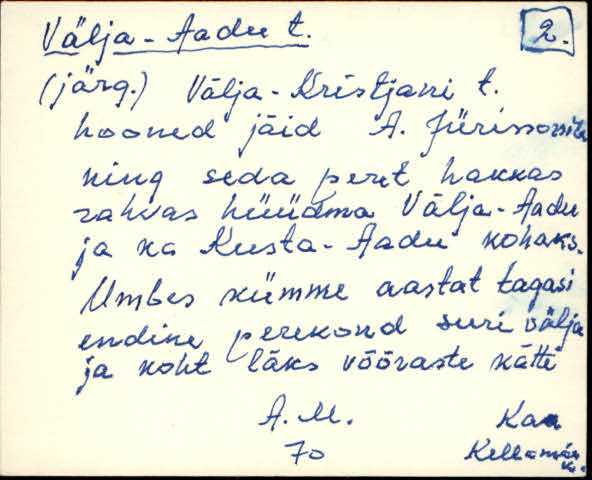 Välja-Aadu t. 2.
(järg.) Välja-Kristjani t.
hooned jäid A. Jürissonile
ning seda peret hakkas
rahvas hüüdma Välja-Aadu
ja ka Kusta-Aadu kohaks.
Umbes kümme aastat tagasi
endine perekond suri välja
ja koht läks võõraste kätte
A. M. Kaa
70 Kellamäe k.